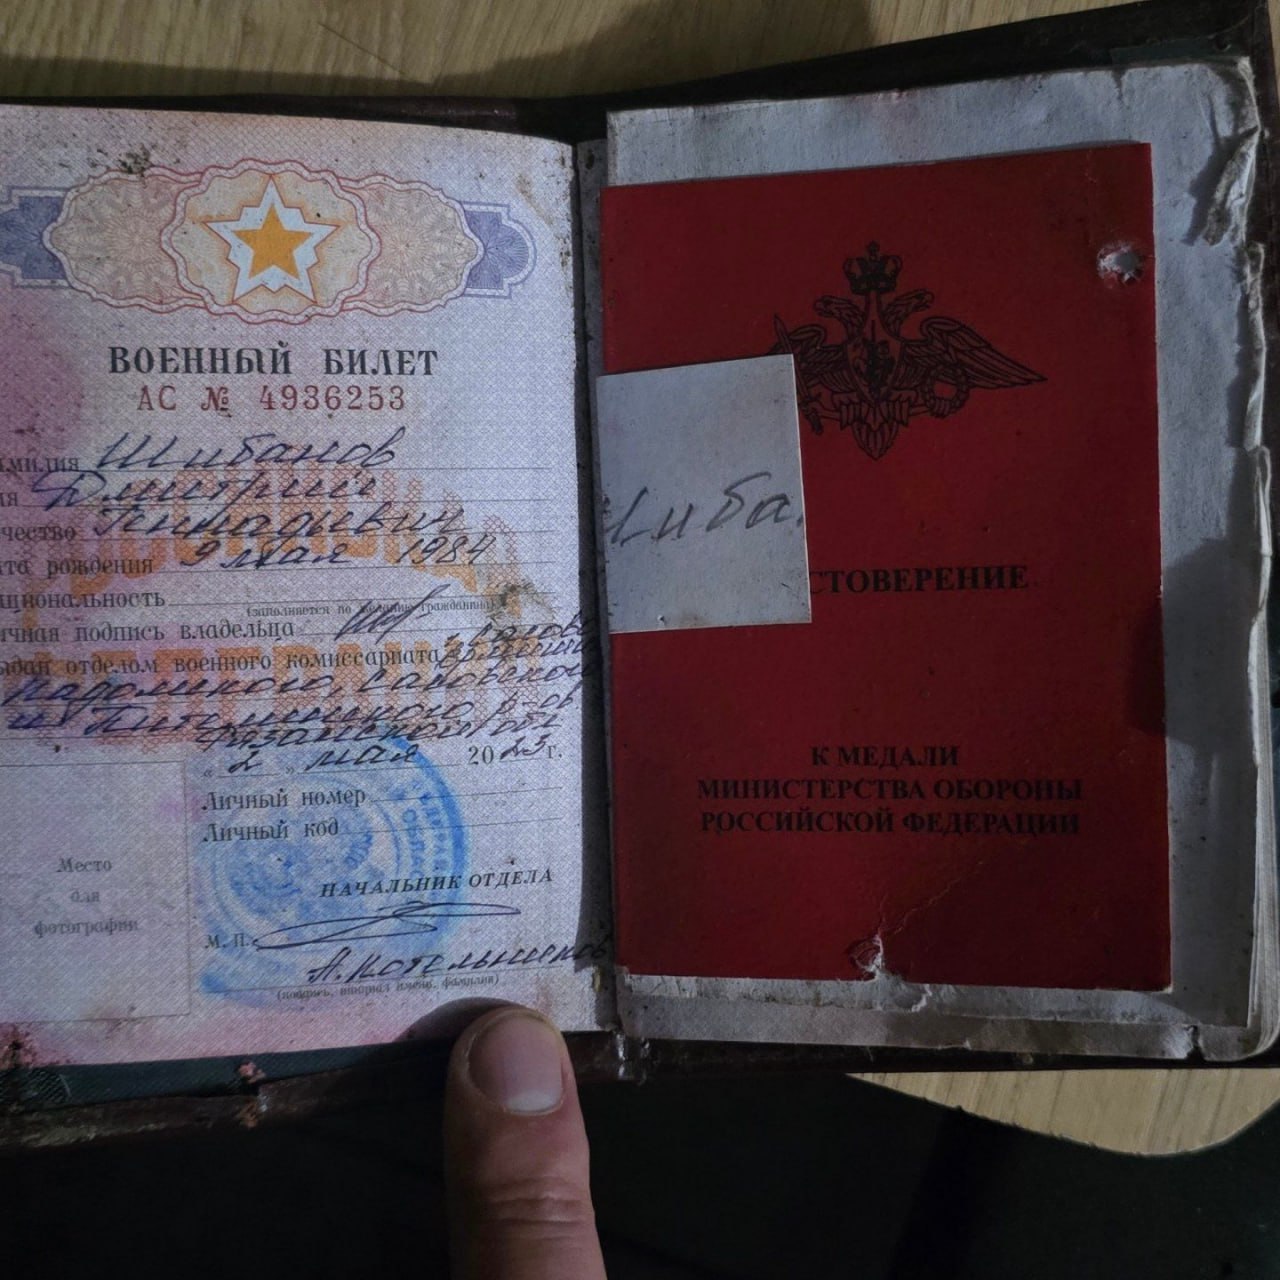 ВОЕННЫЙ БИЛЕТ
АС № 4936253
амилия Шибанов
мя Дмитрий
чество Геннадьевич
ата рождения 9 мая 1984
ациональность
(заполняется по желанию гражданина)
ичная подпись владельца
ыдан отделом военного комиссариата
Кадомского, Сасовского
и Пителинского р-ов
Рязанской обл
« 2 » мая 2023 г.
Личный номер
Личный код
Место
для
фотографии
НАЧАЛЬНИК ОТДЕЛА
М. П.
А. Котельников
(подпись, инициал имени, фамилия)
Шиба
СТОВЕРЕНИЕ
К МЕДАЛИ
МИНИСТЕРСТВА ОБОРОНЫ
РОССИЙСКОЙ ФЕДЕРАЦИИ